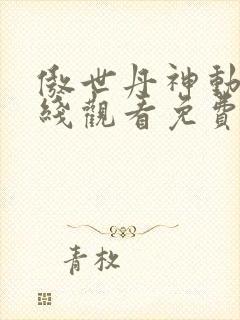 傲世丹神動
綫觀看免費
青枚